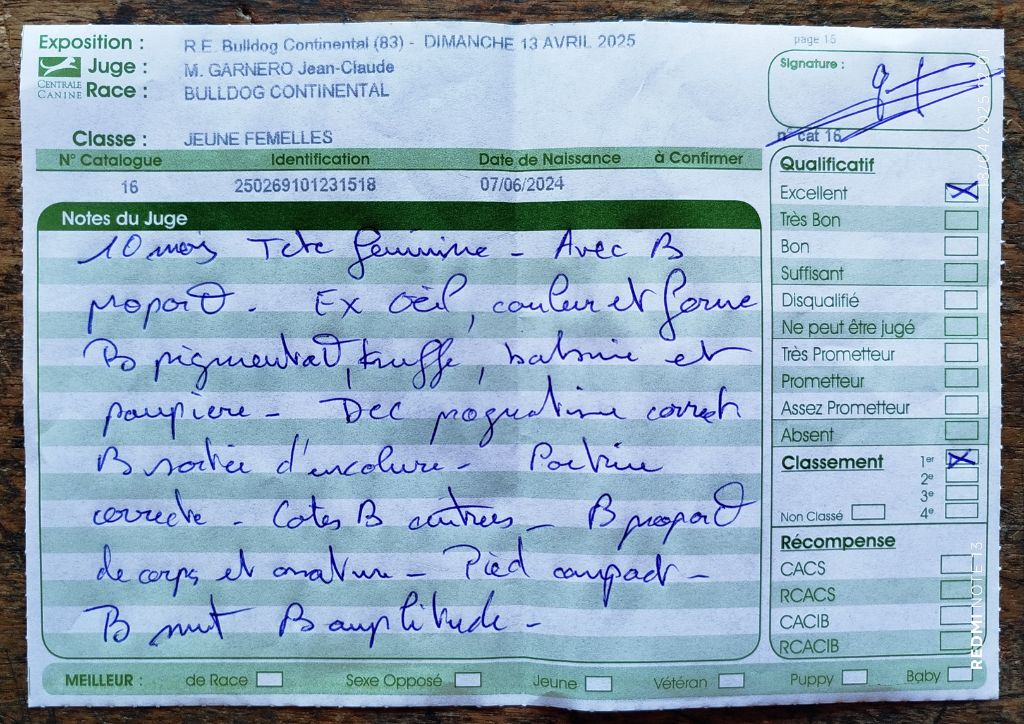 Exposition : R.E. Bulldog Continental (83) - DIMANCHE 13 AVRIL 2025
page 16
Juge : M. GARNERO Jean-Claude
CENTRALE CANINE
Race : BULLDOG CONTINENTAL
Signature :
n° cat 16
Classe : JEUNE FEMELLES
N° Catalogue Identification Date de Naissance à Confirmer
16 250269101231518 07/06/2024
Notes du Juge
10 mois Tete feminine - Avec B
proport. Ex oeil, couleur et forme
B pigmentat, truffe, babine et
paupiere - Dec prognatisme correct
B sortie d'encolure - Poitrine
correcte - Cotes B cintrees - B proport
de corps et ossature - Pied compact -
B mvt B amplitude -
Qualificatif
Excellent
Très Bon
Bon
Suffisant
Disqualifié
Ne peut être jugé
Très Prometteur
Prometteur
Assez Prometteur
Absent
Classement 1er
2e
3e
Non Classé 4e
Récompense
CACS
RCACS
CACIB
RCACIB
MEILLEUR : de Race Sexe Opposé Jeune Vétéran Puppy Baby
REDMI NOTE 13